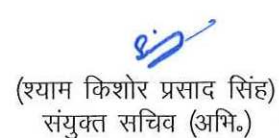 (श्याम किशोर प्रसाद सिंह)
संयुक्त सचिव (अभि०)